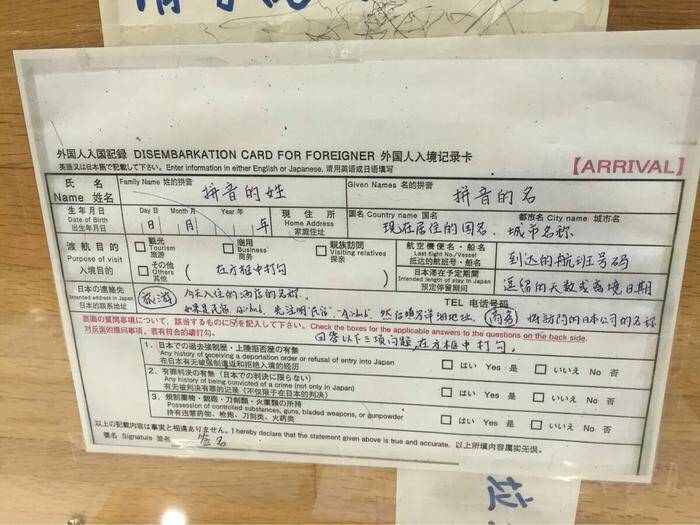 外国人入国記録 DISEMBARKATION CARD FOR FOREIGNER 外国人入境记录卡
英語又は日本語で記載して下さい。Enter information in either English or Japanese. 请用英语或日语填写
【ARRIVAL】
氏 名
Name 姓名
Family Name 姓的拼音
拼音的姓
Given Names 名的拼音
拼音的名
生年月日
Date of Birth
出生年月日
Day 日 Month 月 Year 年
日 月 年
現 住 所
Home Address
家庭住址
国名 Country name 国名
现在居住的国名、
都市名 City name 城市名
城市名称
渡航目的
Purpose of visit
入境目的
観光
Tourism
旅游
商用
Business
商务
親族訪問
Visiting relatives
探亲
その他
Others
其他
( 在方框中打勾 )
航空機便名・船名
Last flight No./Vessel
抵达的航班号・船名
到达的航班号码
日本滞在予定期間
Intended length of stay in Japan
预定停留期间
逗留的天数或离境日期
日本の連絡先
Intended address in Japan
日本的联系地址
旅游 今天入住的酒店的名称.
TEL 电话号码
如果是民宿、先注明"民宿"、"Airbnb". 然后填写详细地址.
商务 的日本公司的名称
裏面の質問事項について、該当するものに☑を記入して下さい。Check the boxes for the applicable answers to the questions on the back side.
对反面的提问事项，若有符合的请打勾。
回答以下三项问题,在方框中打勾.
1. 日本での退去強制歴・上陸拒否歴の有無
Any history of receiving a deportation order or refusal of entry into Japan
在日本有无被强制遣返和拒绝入境的经历
はい Yes 是 いいえ No 否
2. 有罪判決の有無（日本での判決に限らない）
Any history of being convicted of a crime (not only in Japan)
有无被判决有罪的记录（不仅仅限于在日本的判决）
はい Yes 是 いいえ No 否
3. 規制薬物・銃砲・刀剣類・火薬類の所持
Possession of controlled substances, guns, bladed weapons, or gunpowder
持有违禁药物、枪炮、刀剑类、火药类
はい Yes 是 いいえ No 否
以上の記載内容は事実と相違ありません。I hereby declare that the statement given above is true and accurate. 以上所填内容属实无误。
署名 Signature 签名
签名